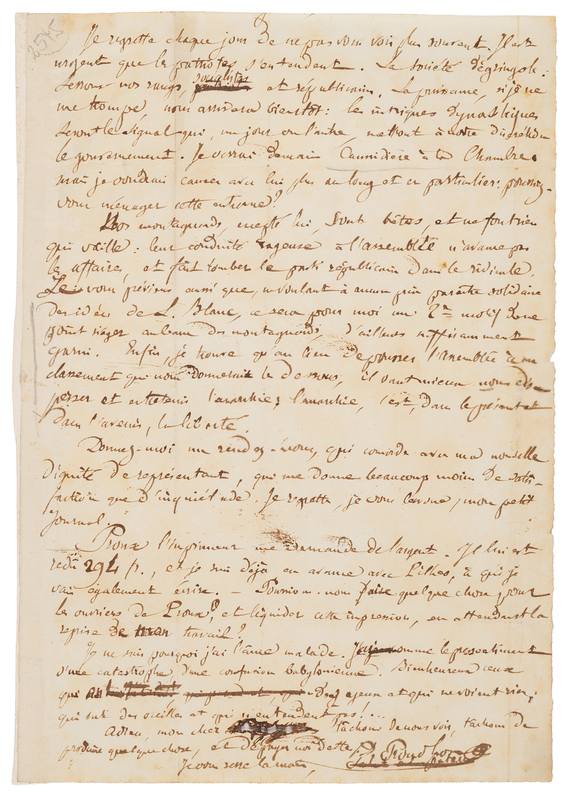 2545
Je regrette chaque jour de ne pas vous voir plus souvent. Il est
urgent que les patriotes s'entendent. La société dégringole :
serrons nos rangs, socialistes et républicains. La puissance, si je ne
me trompe, nous arrivera bientôt : les intrigues dynastiques
seront le signal qui, un jour ou l'autre, mettront à notre discrétion
le gouvernement. Je verrai demain Caussidière à la Chambre ;
mais je voudrais causer avec lui plus au long et en particulier : pouvez-
vous ménager cette entrevue ?
Nos montagnards, excepté lui, sont bêtes, et ne font rien
qui vaille : leur conduite rageuse à l'assemblée n'avance pas
les affaires, et fait tomber le parti républicain dans le ridicule.
Je vous préviens aussi que, ne voulant à aucun prix paraître solidaire
des idées de L. Blanc, ce sera pour moi un 2me motif de ne
point siéger au banc des montagnards, d'ailleurs suffisamment
garni. Enfin, je trouve qu'au lieu de pousser l'assemblée à un
classement qui nous donnerait le dessous, il vaut mieux nous dis-
perser et entretenir l'anarchie ; l'anarchie, c'est, dans le présent et
dans l'avenir, la liberté.
Donnez-moi un rendez-vous, qui concorde avec ma nouvelle
dignité de représentant, qui me donne beaucoup moins de satis-
faction que d'inquiétude. Je regrette, je vous l'avoue, mon petit
journal.
Proux l'imprimeur me demande de l'argent. Il lui est
redû 294 fr., et je suis déjà en avance avec , à qui je
vais également écrire. — Pourrions-nous faire quelque chose pour
les ouvriers de Proux, et liquider cette impression, en attendant la
reprise de travail ?
Je ne sais pourquoi j'ai l'âme malade. J'ai comme le pressentiment
d'une catastrophe, d'une confusion babylonienne. Bienheureux ceux
qui ont des yeux et qui ne voient rien ;
qui ont des oreilles et qui n'entendent pas !...
Adieu, mon cher . Tâchons de nous voir, tâchons de
produire quelque chose, et de payer nos dettes.
Je vous serre la main,
P. J. Proudhon